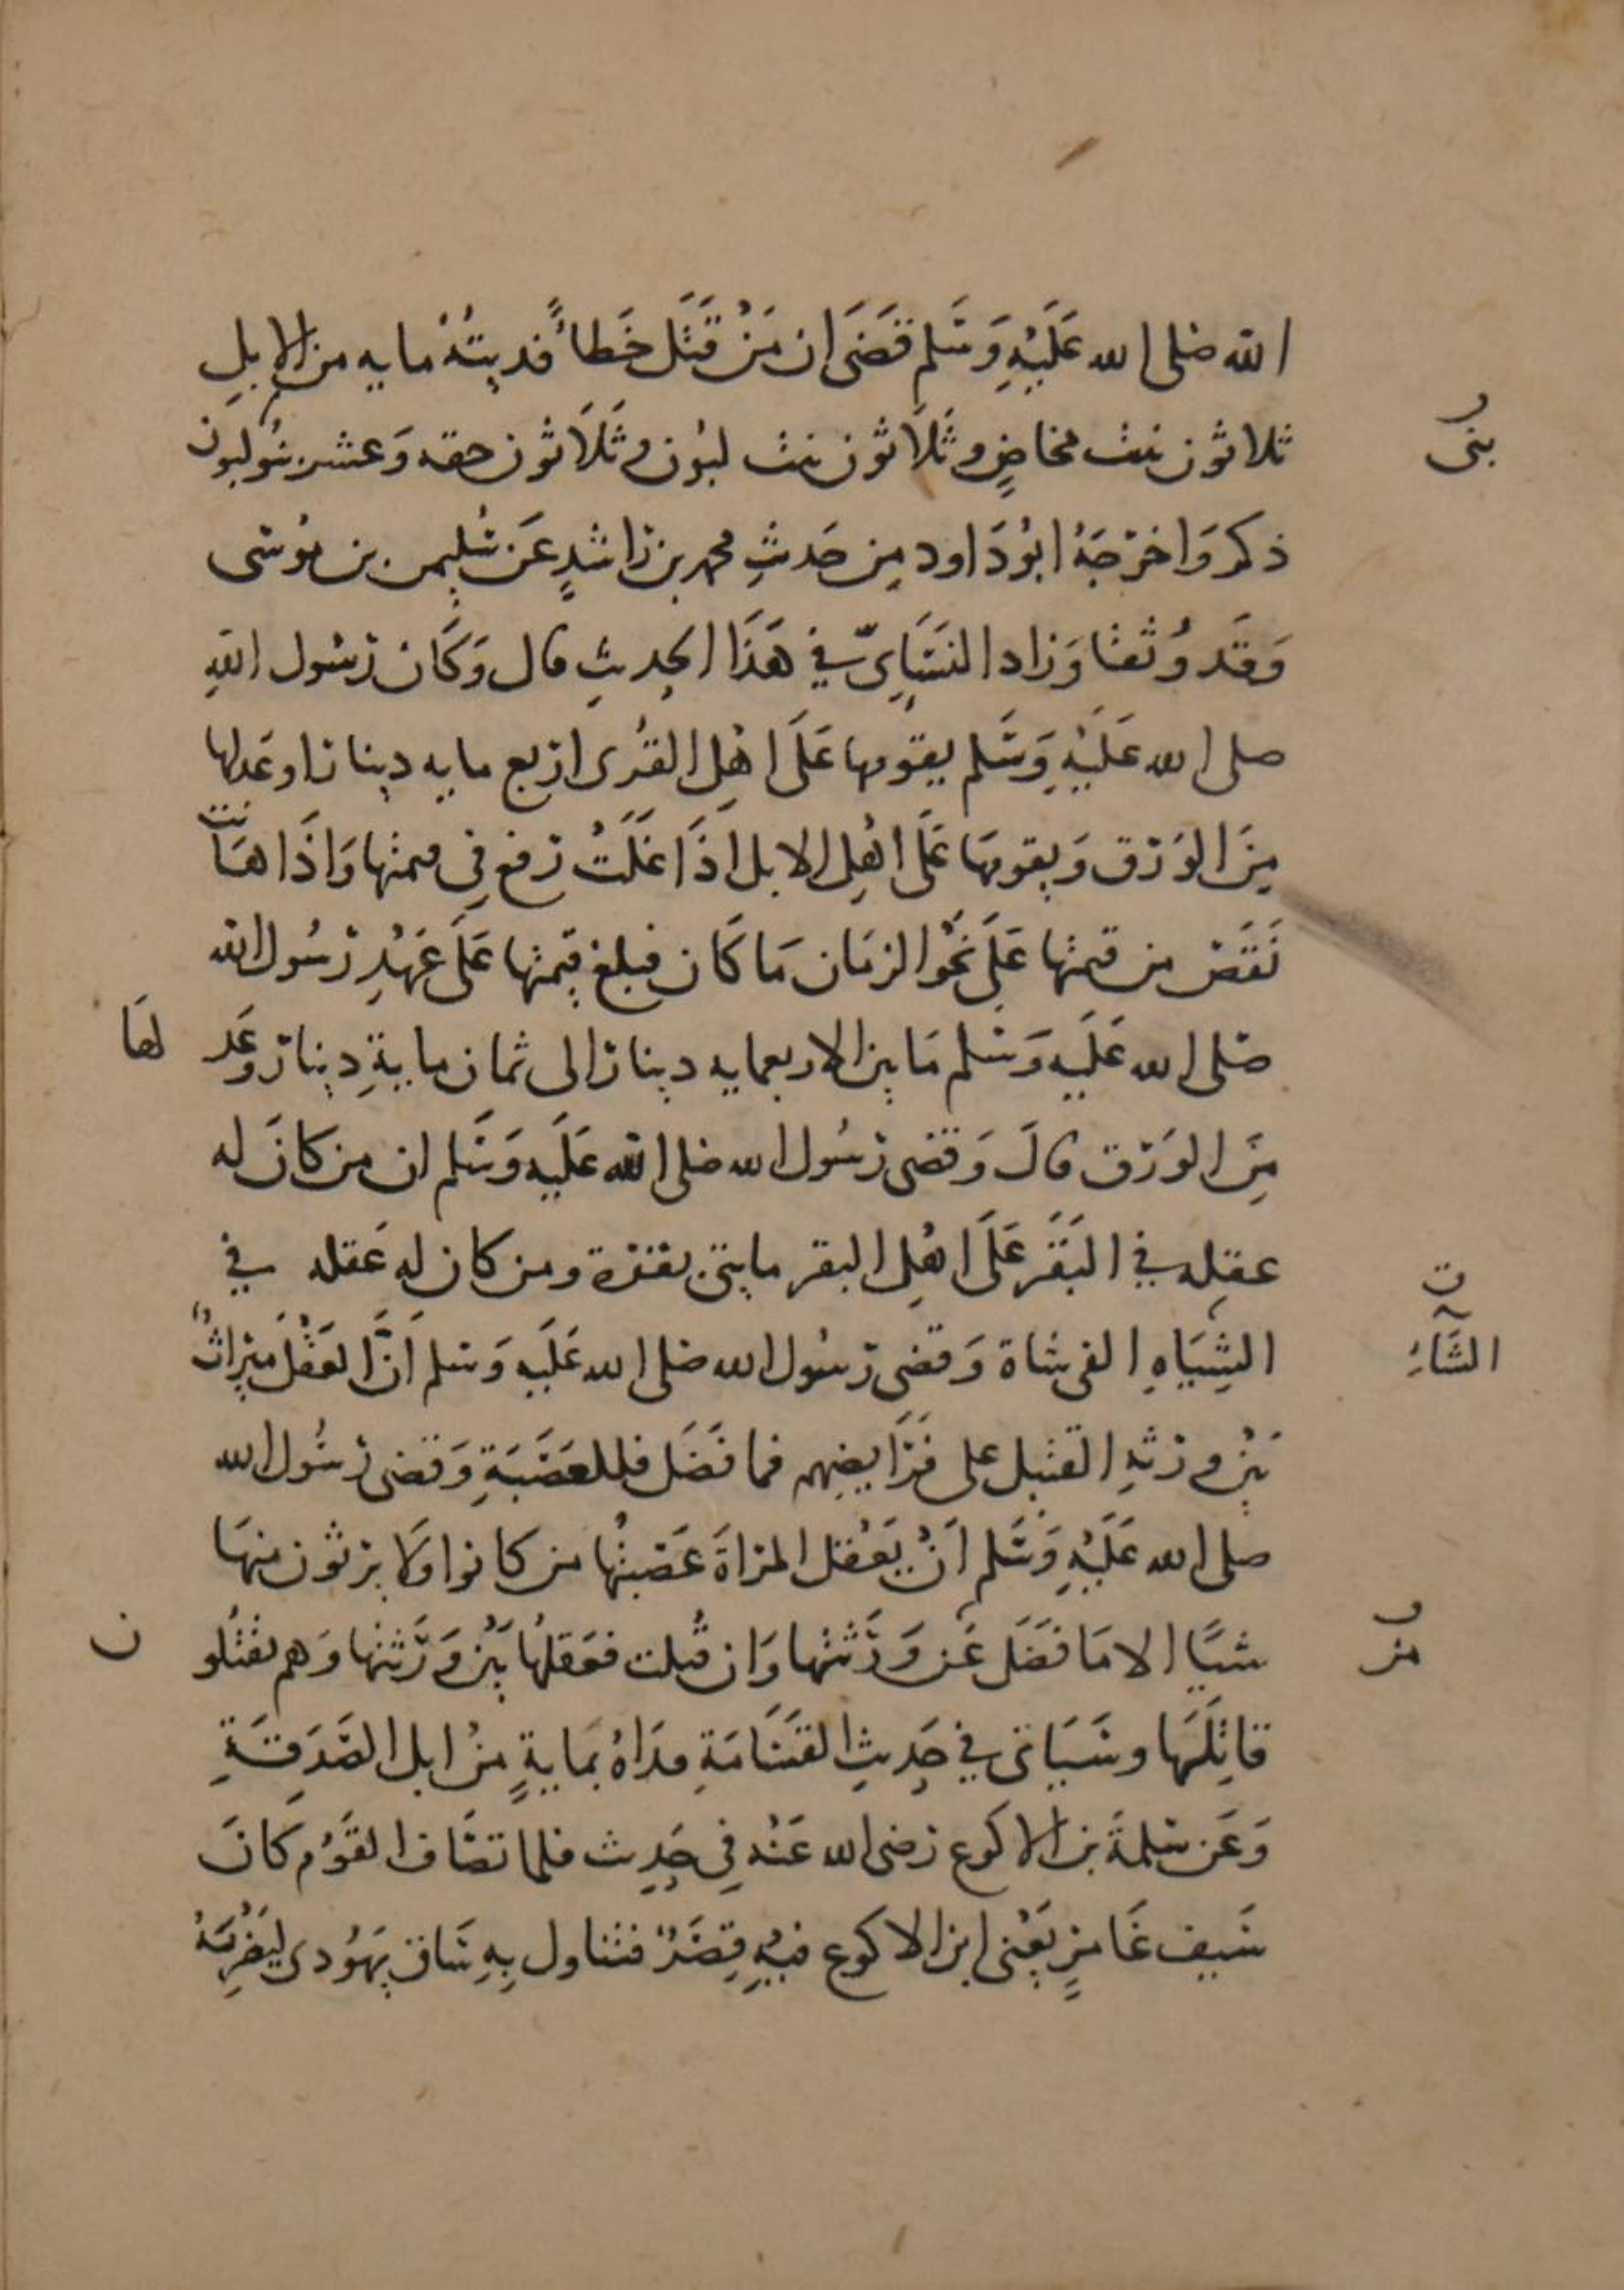 الله صلى الله عَلَيْهِ وَسَلم قَضَى ان مَنْ قَتَلَ خَطأً فديتُهُ مايه من الإبلِ
ثلاثون بنت مخاضٍ وثَلَاثون بنت لبُون وثَلَاثون حقه وَعشر بنو لبون
بنى
ذكر وَاخرَجَهُ ابُو دَاود مِن حَديثِ محمد بن رَاشدٍ عَن سُليمن بن مُوسَى
وَقَد وُثقا وَزاد النسَايّ في هَذَا الحديثِ قال وَكَان رَسُول اللهِ
صلى الله عَلَيْهِ وَسَلم يقومها عَلَى اهْلِ القُرى اربع مايه دينارا وعَدلها
مِنَ الوَرق وَيقومهَا عَلَى اهْلِ الابل اذَا غَلَتْ رَفع فِي قيمتها وَاذَا هَانت
نَقَصَ من قيمتها عَلَى نَحْو الزمَان مَا كَان فبلغ قِيمَتها عَلَى عَهْدِ رَسُول الله
صَلى الله عَلَيه وَسَلم مَا بين الاربعمايه دينار الى ثمان مايةِ دِينار وعَد لهَا
مِنَ الوَرق قالَ وَقَضى رَسُول الله صلى الله عَلَيه وَسَلم ان من كانَ له
عقله في البَقَر عَلَى اهْلِ البقر مايتى بقرة ومن كان له عَقله في
الشِيَاهِ الفى شاة وَقضى رَسُول الله صلى الله عَلَيه وَسَلم أنَّ العَقْلَ ميراثٌ
الشَّاءِ
بَيْن ورثهِ القتيل على فَرَايضِهم فما فَضَلَ فللعَصَبَةِ وَقضى رَسُول الله
صلى الله عَلَيْهِ وَسَلم أنْ يَعْقل المراةَ عَصَبتُها من كانوا ولَا يرثون منهَا
شيًا الا مَا فَضَلَ عَن وَرَثتها وَان قُتلت فعَقلُها بَيْن وَرَثتها وَهم يقتُلو ن
من
قاتِلَهَا وسَيَاتى في حَدِيثِ القَسَامَةِ فدَاهُ بمايةٍ منْ ابل الصَدَقَةِ
وَعَن سَلمةَ بن الاكوع رَضى الله عَنه فِي حَدِيث فلما تصَاف القَوْم كانَ
سَيف عَامرٍ يَعْنى ابن الاكوع فيهِ قِصَرٌ فتناول بِهِ سَاق يهَوُدى ليَضْرِبَهُ